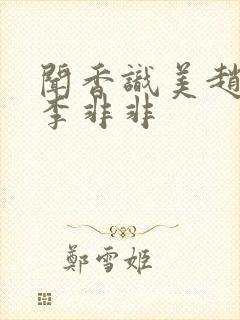 聞香識美趙
李非非
鄭雪姬